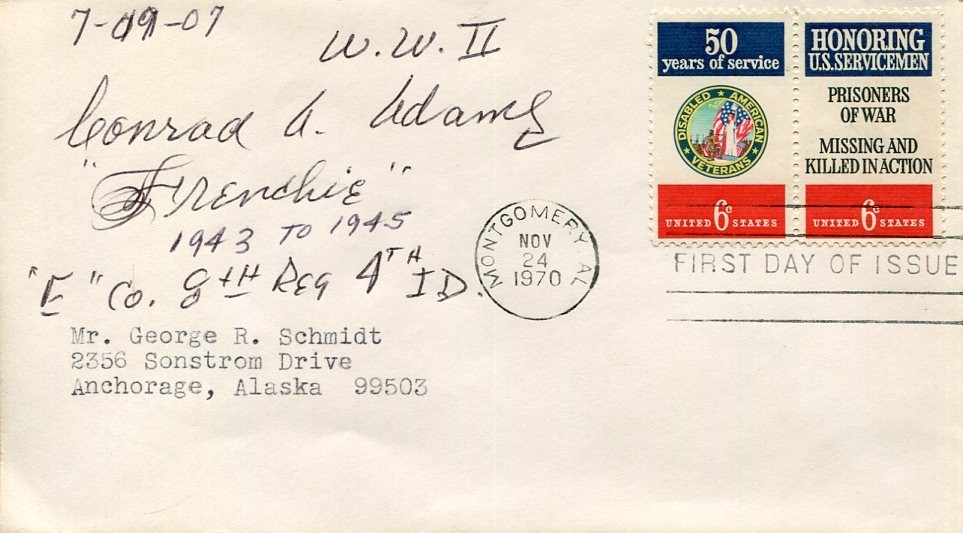 7-09-07
W.W. II
Conrad A. Adams
"Frenchie"
1943 TO 1945
"E" Co. 8TH Reg 4TH ID.
Mr. George R. Schmidt
2356 Sonstrom Drive
Anchorage, Alaska 99503
MONTGOMERY AL
NOV
24
1970
50
years of service
DISABLED ★ AMERICAN
★ VETERANS ★
UNITED 6c STATES
HONORING
U.S. SERVICEMEN
PRISONERS
OF WAR
MISSING AND
KILLED IN ACTION
UNITED 6c STATES
FIRST DAY OF ISSUE